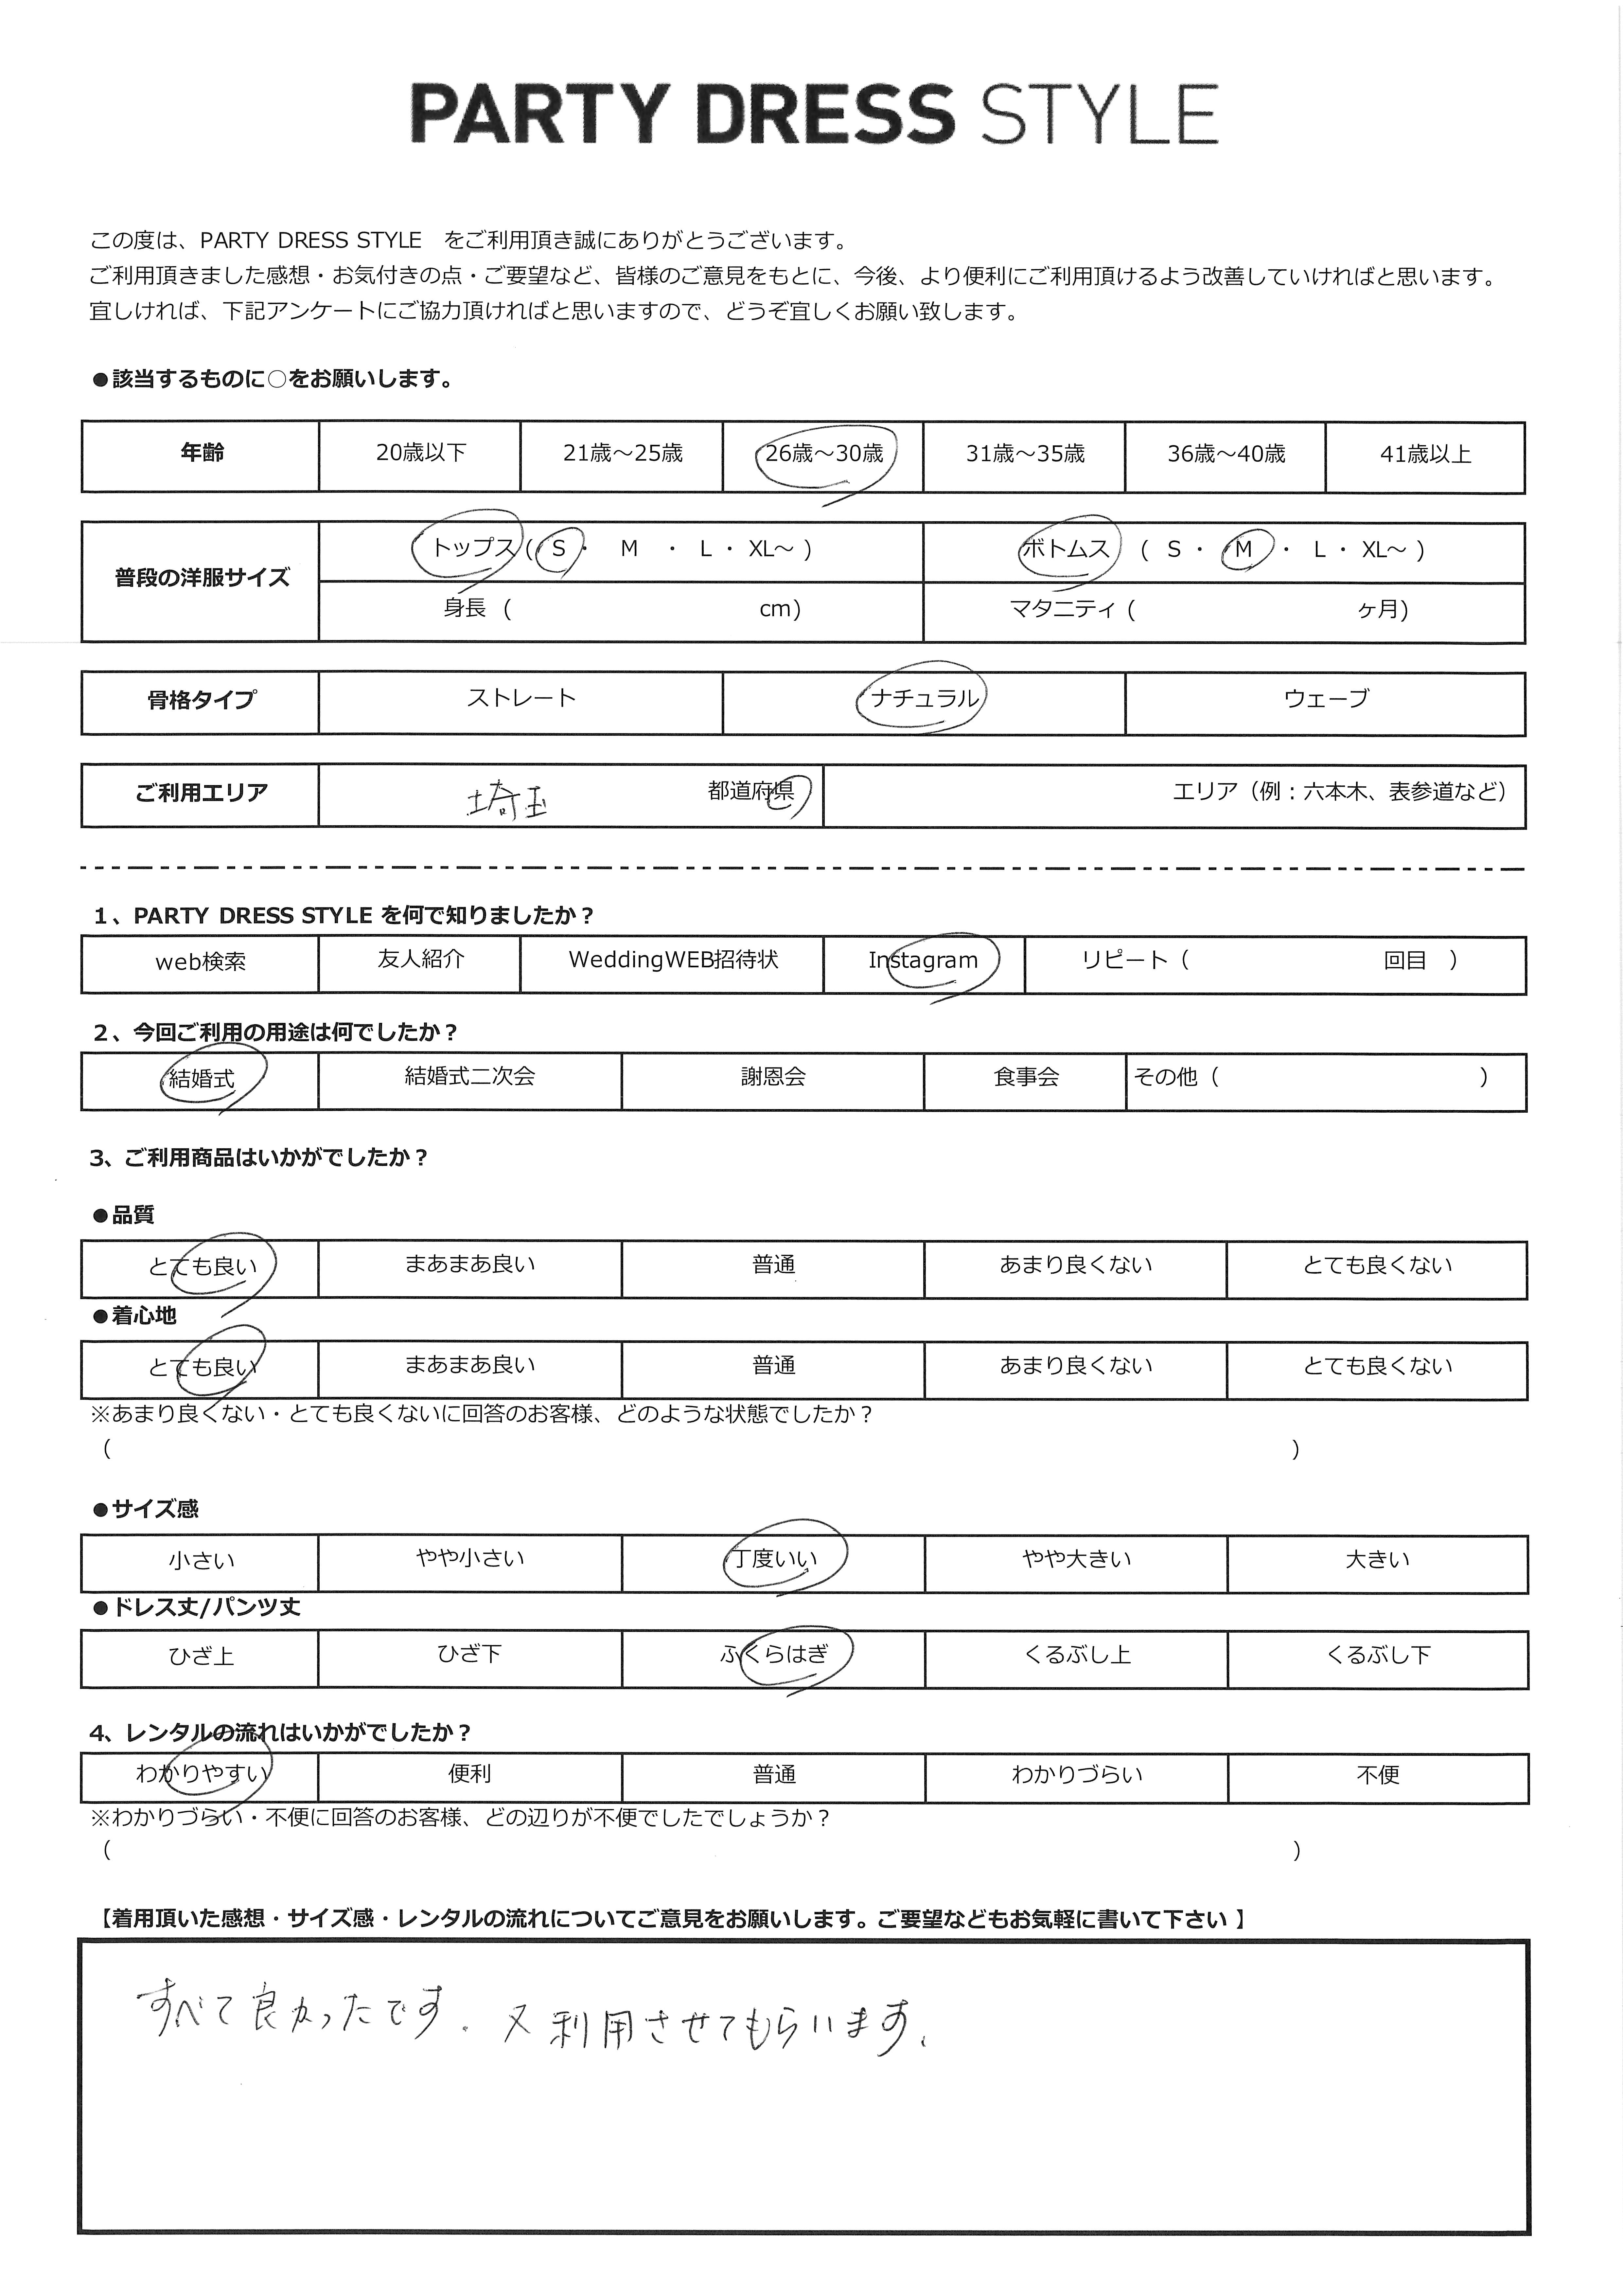 PARTY DRESS STYLE
この度は、PARTY DRESS STYLE　をご利用頂き誠にありがとうございます。
ご利用頂きました感想・お気付きの点・ご要望など、皆様のご意見をもとに、今後、より便利にご利用頂けるよう改善していければと思います。
宜しければ、下記アンケートにご協力頂ければと思いますので、どうぞ宜しくお願い致します。
●該当するものに○をお願いします。
年齢 20歳以下 21歳～25歳 26歳～30歳 31歳～35歳 36歳～40歳 41歳以上
普段の洋服サイズ トップス ( S ・ M ・ L ・ XL～ ) ボトムス ( S ・ M ・ L ・ XL～ )
身長 ( cm) マタニティ ( ヶ月)
骨格タイプ ストレート ナチュラル ウェーブ
ご利用エリア 埼玉 都道府県 エリア（例：六本木、表参道など）
1、PARTY DRESS STYLE を何で知りましたか？
web検索 友人紹介 WeddingWEB招待状 Instagram リピート（ 回目 ）
2、今回ご利用の用途は何でしたか？
結婚式 結婚式二次会 謝恩会 食事会 その他（ ）
3、ご利用商品はいかがでしたか？
●品質
とても良い まあまあ良い 普通 あまり良くない とても良くない
●着心地
とても良い まあまあ良い 普通 あまり良くない とても良くない
※あまり良くない・とても良くないに回答のお客様、どのような状態でしたか？
（ ）
●サイズ感
小さい やや小さい 丁度いい やや大きい 大きい
●ドレス丈/パンツ丈
ひざ上 ひざ下 ふくらはぎ くるぶし上 くるぶし下
4、レンタルの流れはいかがでしたか？
わかりやすい 便利 普通 わかりづらい 不便
※わかりづらい・不便に回答のお客様、どの辺りが不便でしたでしょうか？
（ ）
【着用頂いた感想・サイズ感・レンタルの流れについてご意見をお願いします。ご要望などもお気軽に書いて下さい 】
すべて良かったです。又利用させてもらいます。